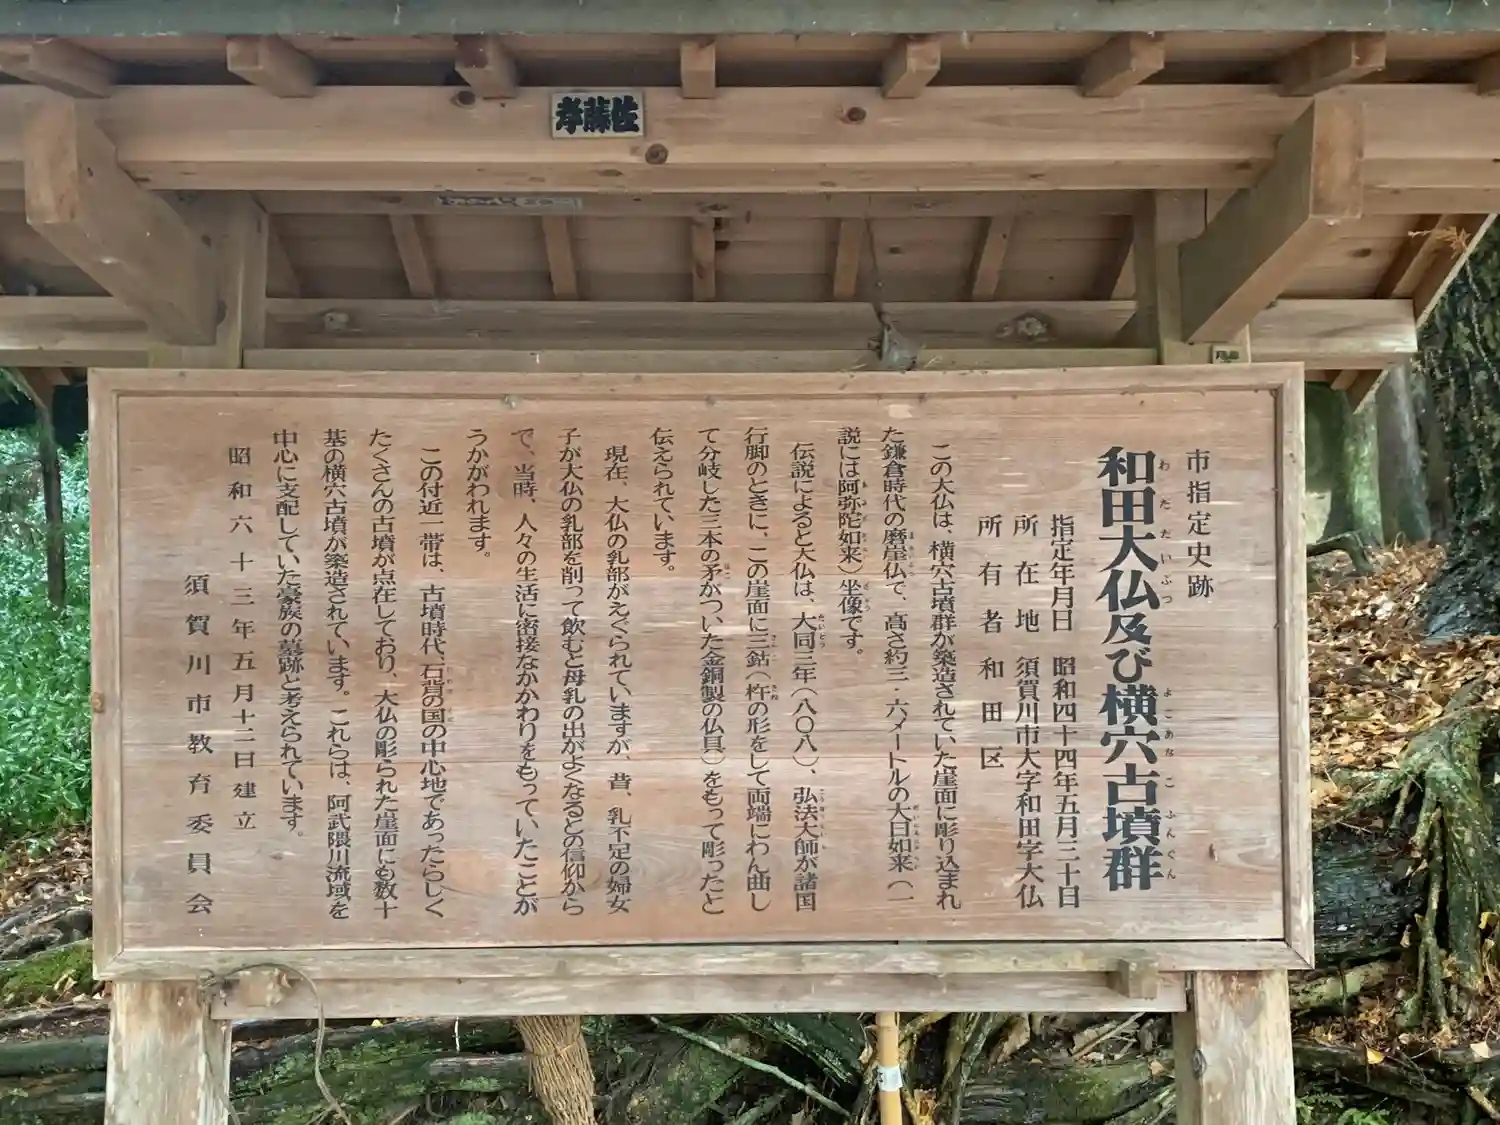 佐藤孝
市指定史跡
和田大仏及び横穴古墳群
わただいぶつ よこあなこふんぐん
指定年月日 昭和四十四年五月三十日
所在地 須賀川市大字和田字大仏
所有者 和田区
この大仏は、横穴古墳群が築造されていた崖面に彫り込まれ
た鎌倉時代の磨崖仏で、高さ約三・六メートルの大日如来(一
説には阿弥陀如来)坐像です。
伝説によると大仏は、大同三年(八〇八)、弘法大師が諸国
行脚のときに、この崖面に三鈷(杵の形をして両端にわん曲し
て分岐した三本の矛がついた金銅製の仏具)をもって彫ったと
伝えられています。
現在、大仏の乳部がえぐられていますが、昔、乳不足の婦女
子が大仏の乳部を削って飲むと母乳の出がよくなるとの信仰から
で、当時、人々の生活に密接なかかわりをもっていたことが
うかがわれます。
この付近一帯は、古墳時代、石背の国の中心地であったらしく
たくさんの古墳が点在しており、大仏の彫られた崖面にも数十
基の横穴古墳が築造されています。これらは、阿武隈川流域を
中心に支配していた豪族の墓跡と考えられています。
昭和六十三年五月十二日建立
須賀川市教育委員会